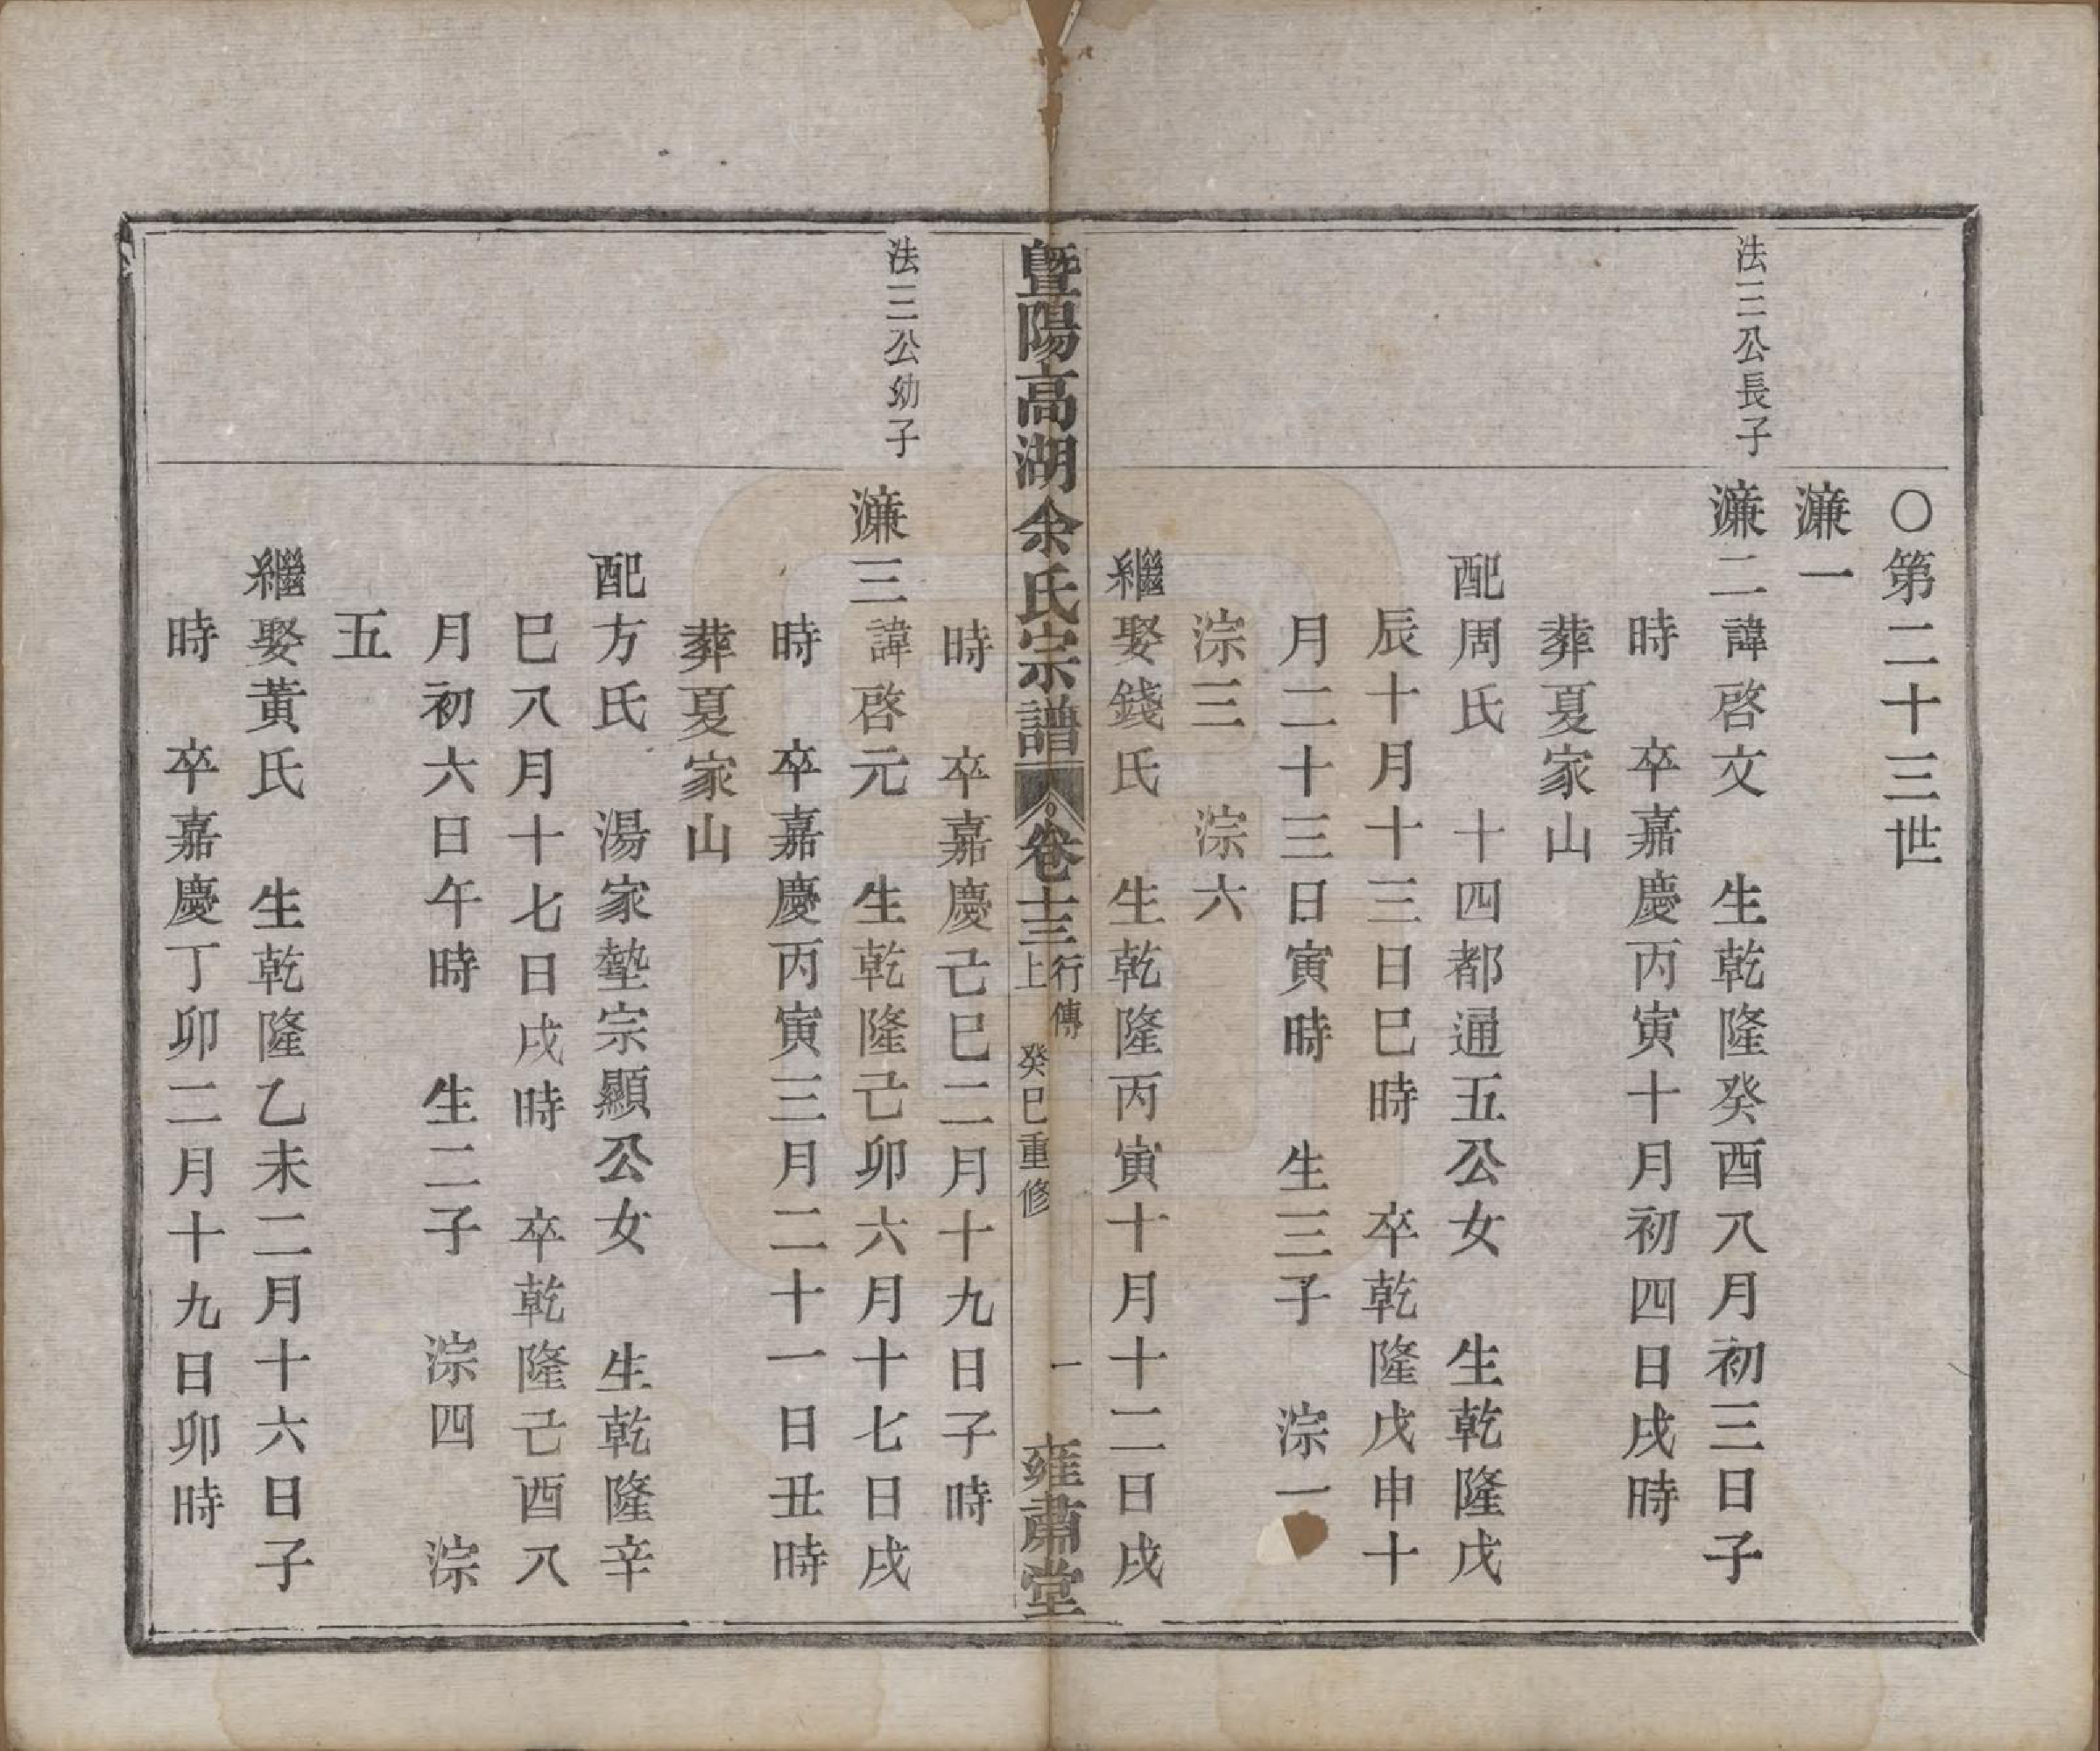 〇第二十三世
濂一
法三公長子
濂二諱啓文　生乾隆癸酉八月初三日子
時　卒嘉慶丙寅十月初四日戌時
葬夏家山
配周氏　十四都通五公女　生乾隆戊
辰十月十三日巳時　卒乾隆戊申十
月二十三日寅時　生三子　淙一
淙三　淙六
繼娶錢氏　生乾隆丙寅十月十二日戌
暨陽高湖余氏宗譜　卷十三上　行傳　癸巳重修　一　雍肅堂
時　卒嘉慶己巳二月十九日子時
法三公幼子
濂三諱啓元　生乾隆己卯六月十七日戌
時　卒嘉慶丙寅三月二十一日丑時
葬夏家山
配方氏　湯家墊宗顯公女　生乾隆辛
巳八月十七日戌時　卒乾隆己酉八
月初六日午時　生二子　淙四　淙
五
繼娶黃氏　生乾隆乙未二月十六日子
時　卒嘉慶丁卯二月十九日卯時